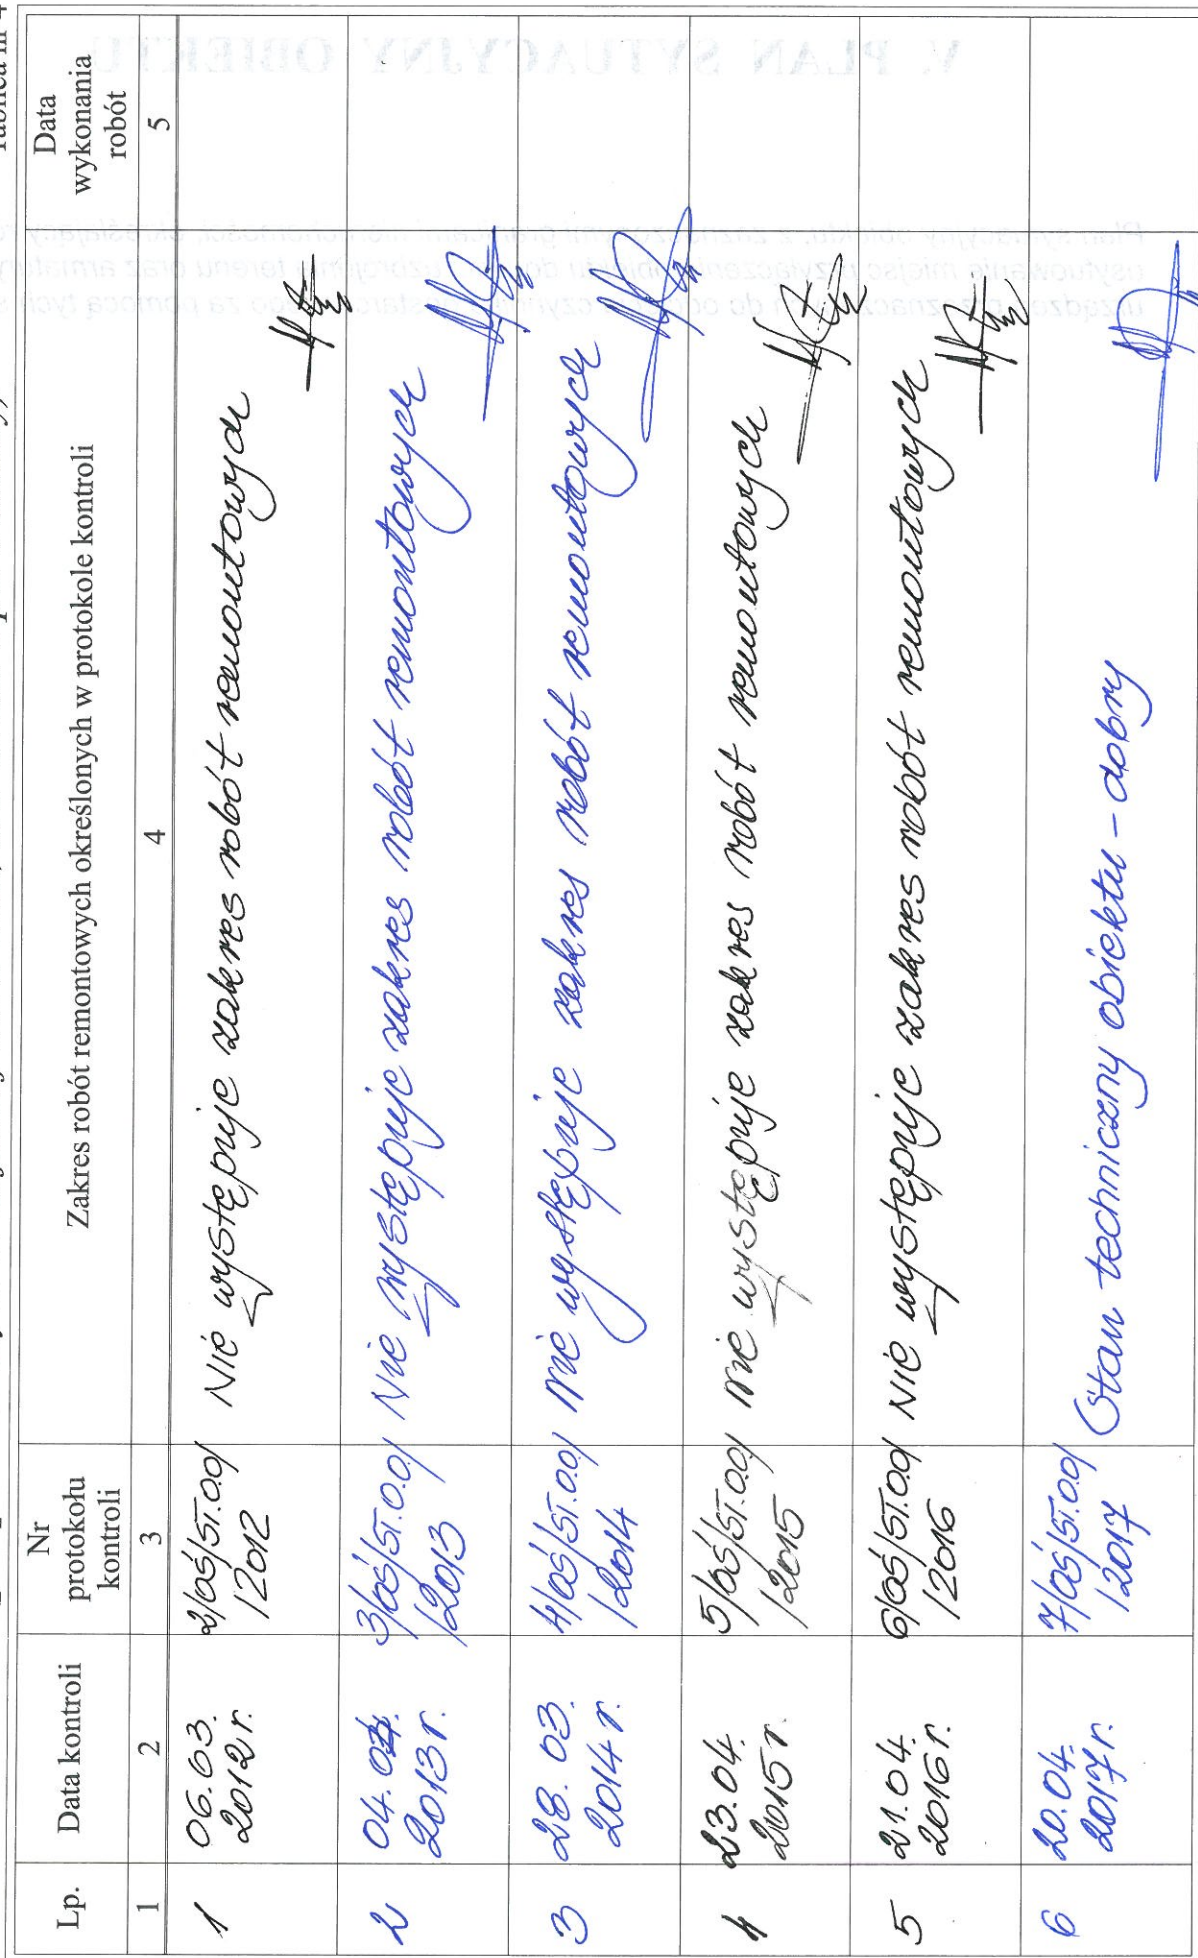 Tablica nr 4
Lp.
Data kontroli
Nr
protokołu
kontroli
Zakres robót remontowych określonych w protokole kontroli
Data
wykonania
robót
1
2
3
4
5
1
06.03.
2012 r.
2/OŚ/ST.O.O/
/2012
Nie występuje zakres robót remontowych
2
2013 r.
3/OŚ/ST.O.O/
/2013
Nie występuje zakres robót remontowych
3
28.03.
2014 r.
4/OŚ/ST.O.O/
/2014
nie występuje zakres robót remontowych
4
23.04.
2015 r.
5/OŚ/ST.O.O/
/2015
nie występuje zakres robót remontowych
5
21.04.
2016 r.
6/OŚ/ST.O.O/
/2016
Nie występuje zakres robót remontowych
6
20.04.
2017 r.
7/OŚ/ST.O.O/
/2017
Stan techniczny obiektu - dobry
V. PLAN SYTUACYJNY OBIEKTU